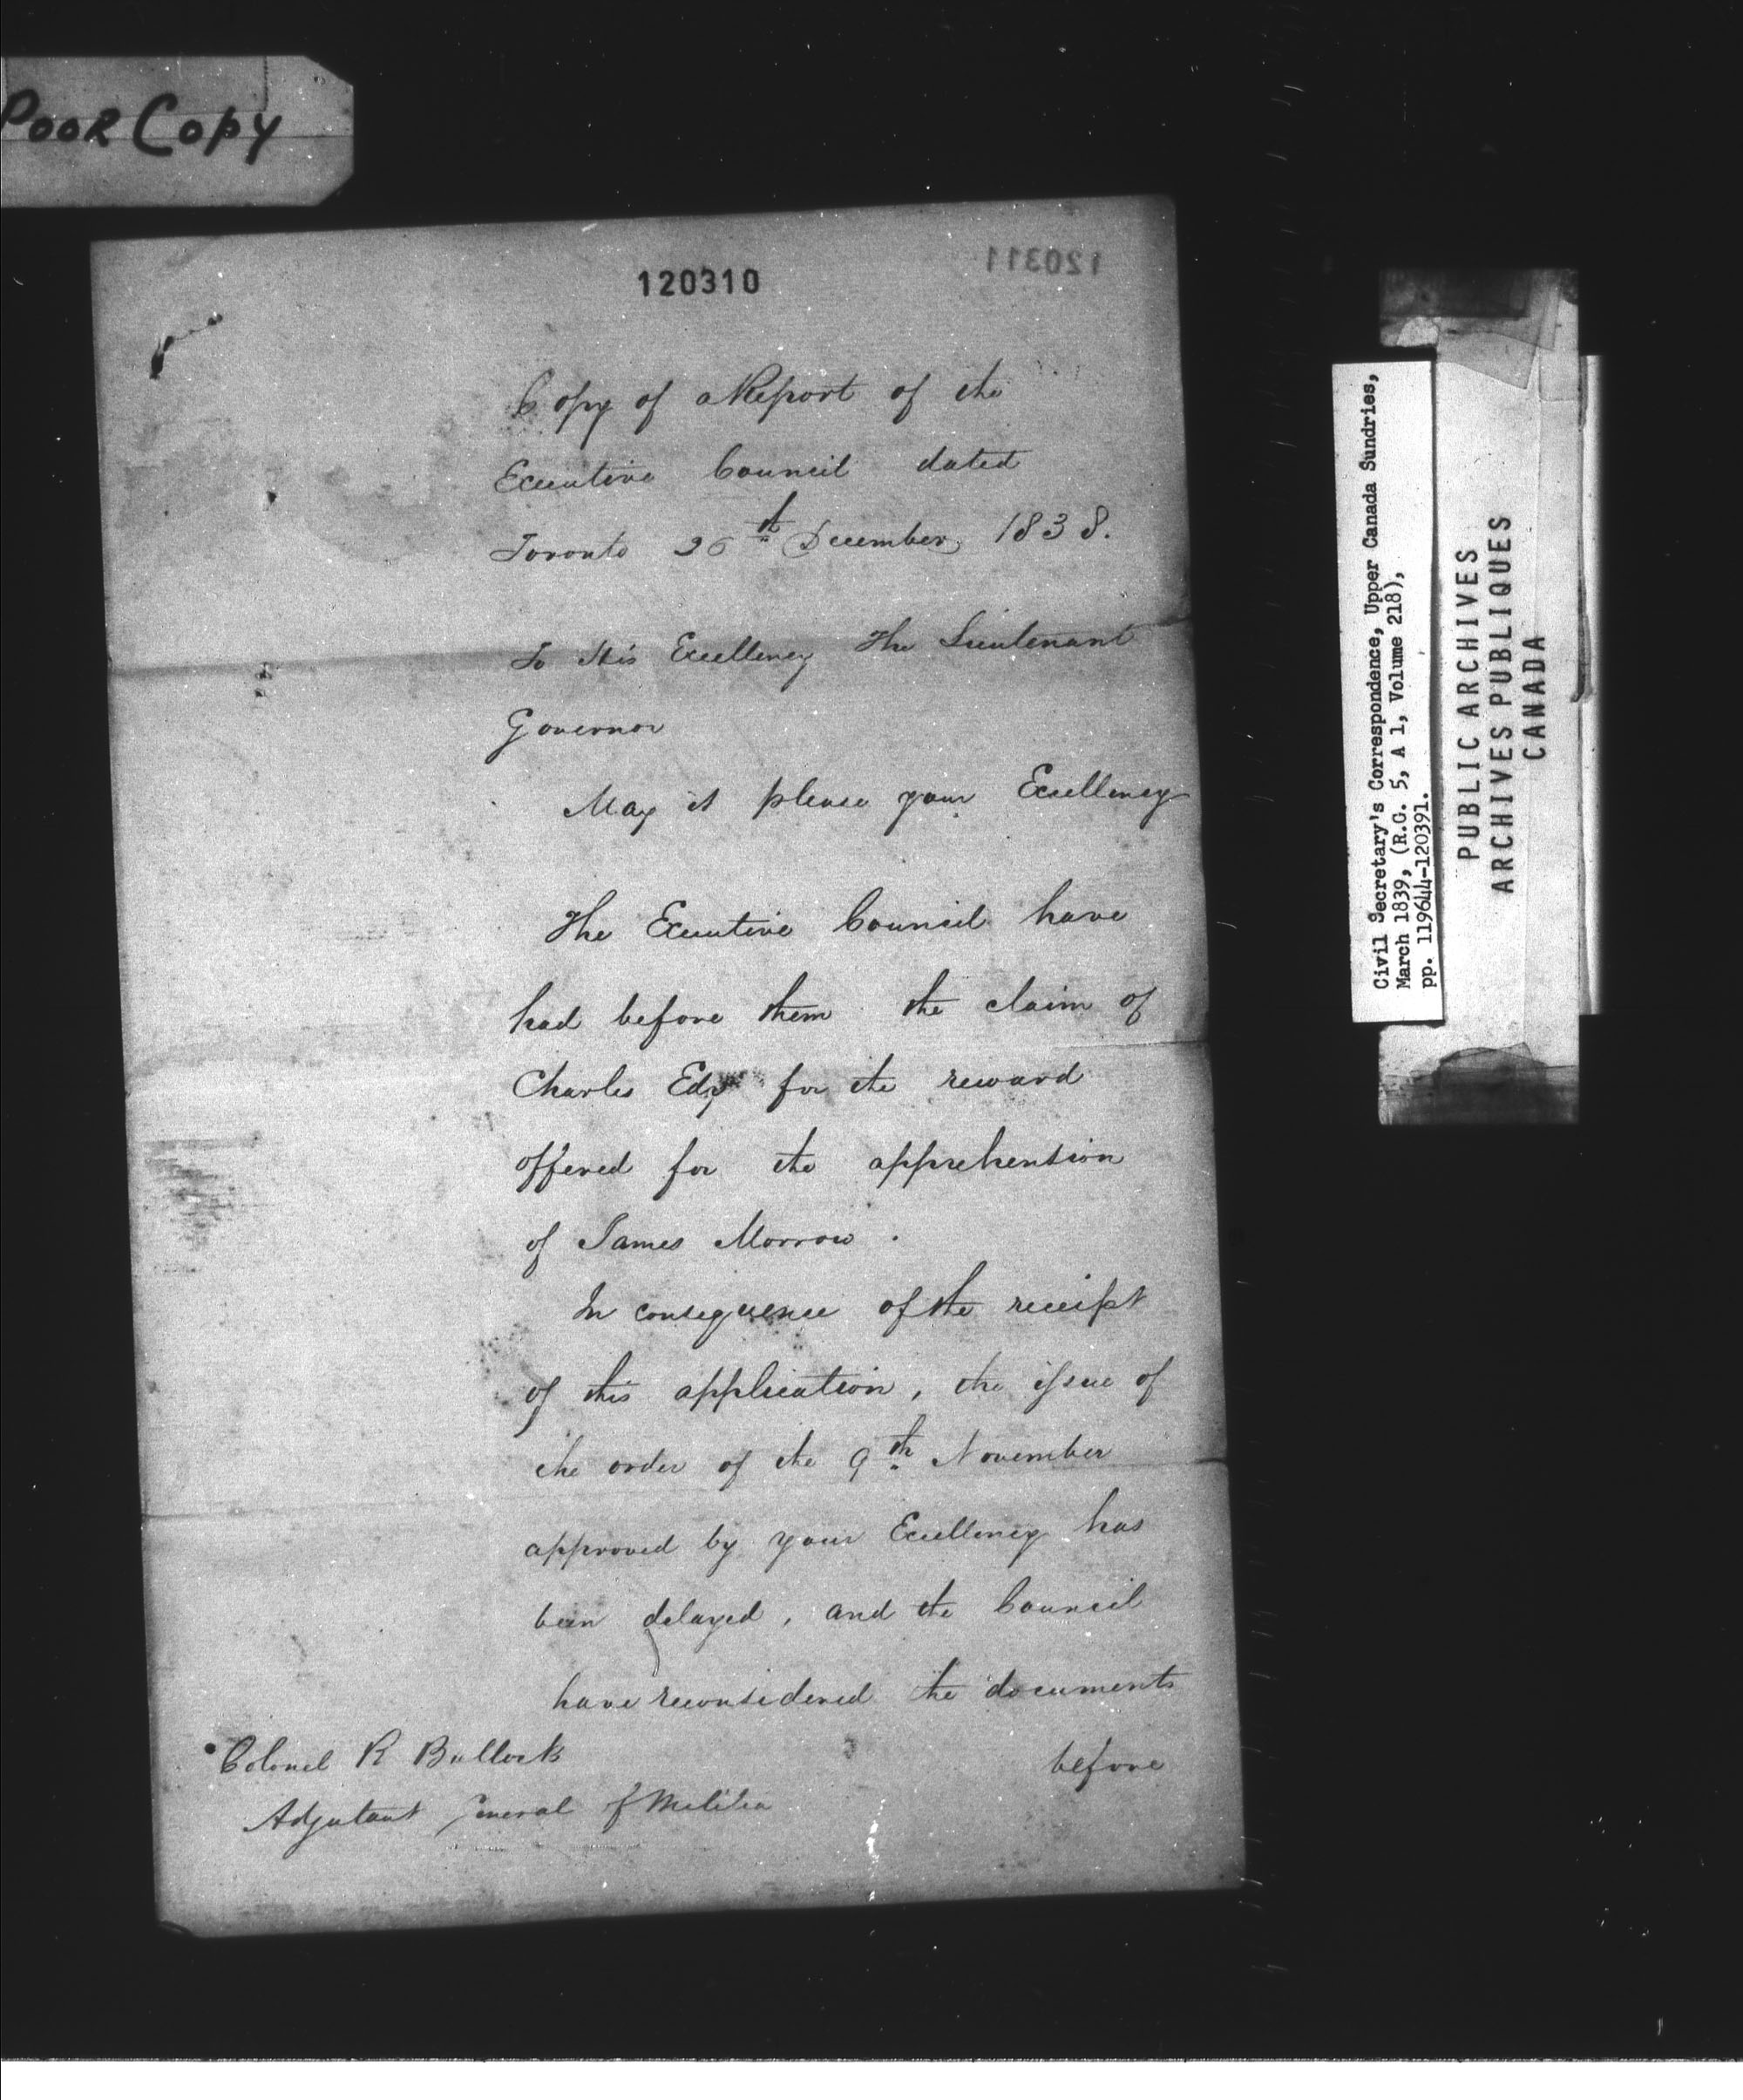 Poor Copy
120310
120311
Copy of a Report of the
Executive Council dated
Toronto 26th December 1838.
To His Excellency The Lieutenant
Governor
May it please your Excellency
The Executive Council have
had before them the claim of
Charles Edy for the reward
offered for the apprehension
of James Morrow.
In consequence of the receipt
of this application, the issue of
the order of the 9th November
approved by your Excellency has
been delayed, and the Council
have reconsidered the documents
before
Colonel R Bullock
Adjutant General of Militia
Civil Secretary's Correspondence, Upper Canada Sundries,
March 1839, (R.G. 5, A 1, Volume 218),
pp. 119644-120391.
PUBLIC ARCHIVES
ARCHIVES PUBLIQUES
CANADA